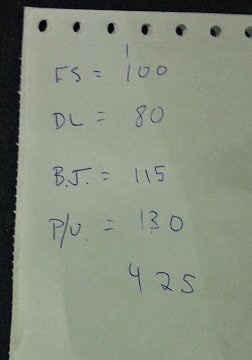 FS = 100
DL = 80
B.J. = 115
P/U. = 130
425